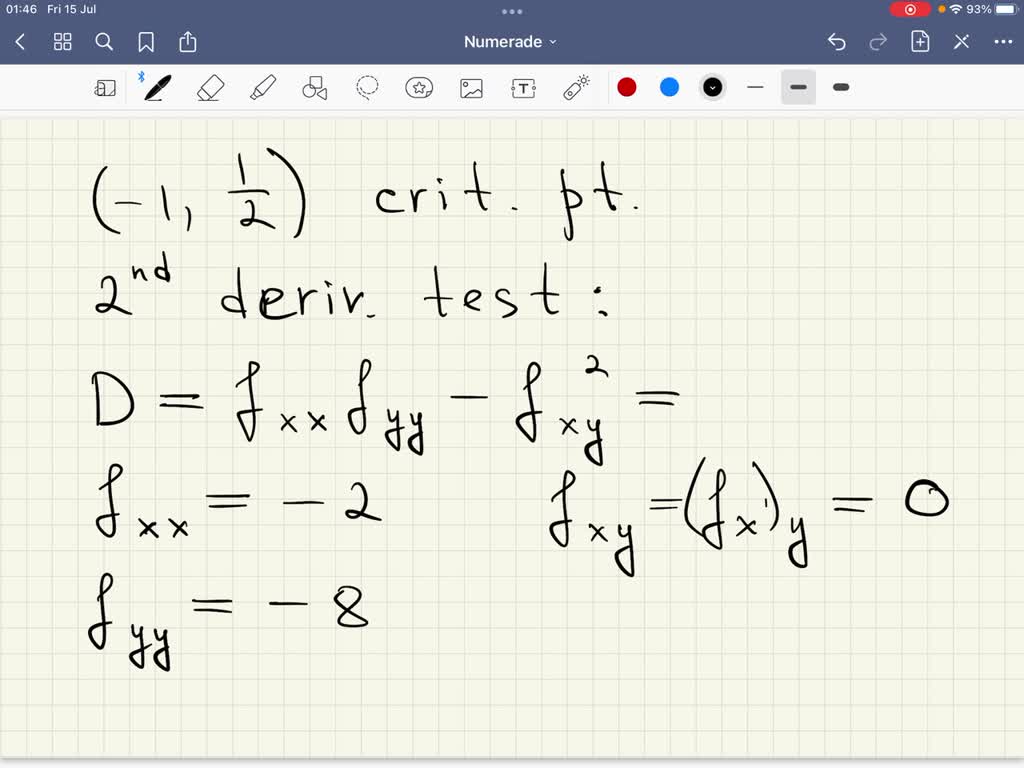 01:46 Fri 15 Jul 93%
Numerade
T
(-1, 1/2) crit. pt.
2nd deriv. test :
D = f_xx f_yy - f_xy^2 =
f_xx = -2 f_xy = (f_x')_y = 0
f_yy = -8